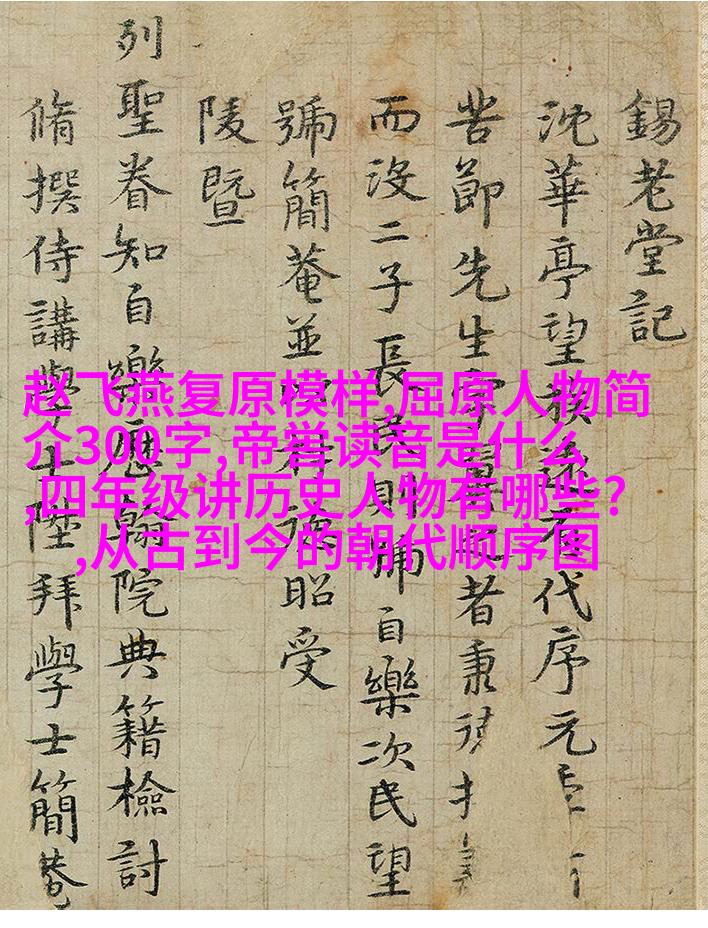 錫老堂記
沈華亭望族遠有代序元
苦節先生者秉
而沒二子長民則號自樂次民望
號簡菴並德昭受
陵暨
列聖眷知自樂歷翰院典籍檢討
脩撰侍講學士陞拜學士簡菴
赵飞燕复原模样,屈原人物简
介300字,帝喾读音是什么
,四年级讲历史人物有哪些?
,从古到今的朝代顺序图